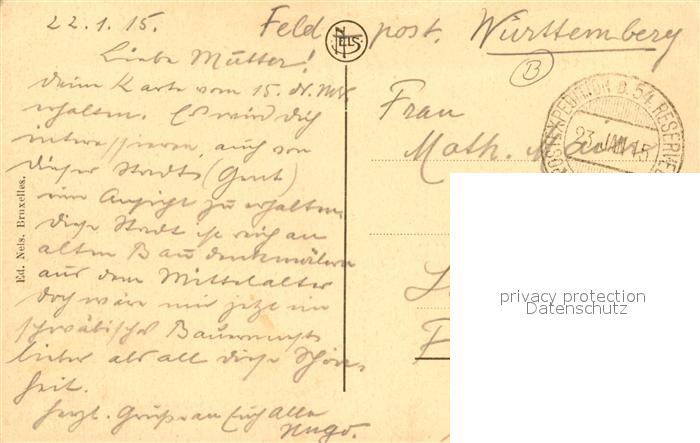 22.1.15.
Feldpost.
Württemberg
NELS
B
Liebe Mutter!
deine Karte vom 15. d. Mt.
erhalten. Es wird dich
interessieren, auch von
dieser Stadt (Gent)
eine Ansicht zu erhalten.
diese Stadt ist reich an
alten Baudenkmälern
aus dem Mittelalter
doch wäre mir jetzt ein
schwäbisches Bauernnest
lieber als all diese Schön-
heit.
herzl. Grüße an Euch alle
Hugo.
Frau
Math.
POSTEXPEDITION D. 54. RESERVE
23. JAN. 15
Ed. Nels. Bruxelles.
privacy protection
Datenschutz